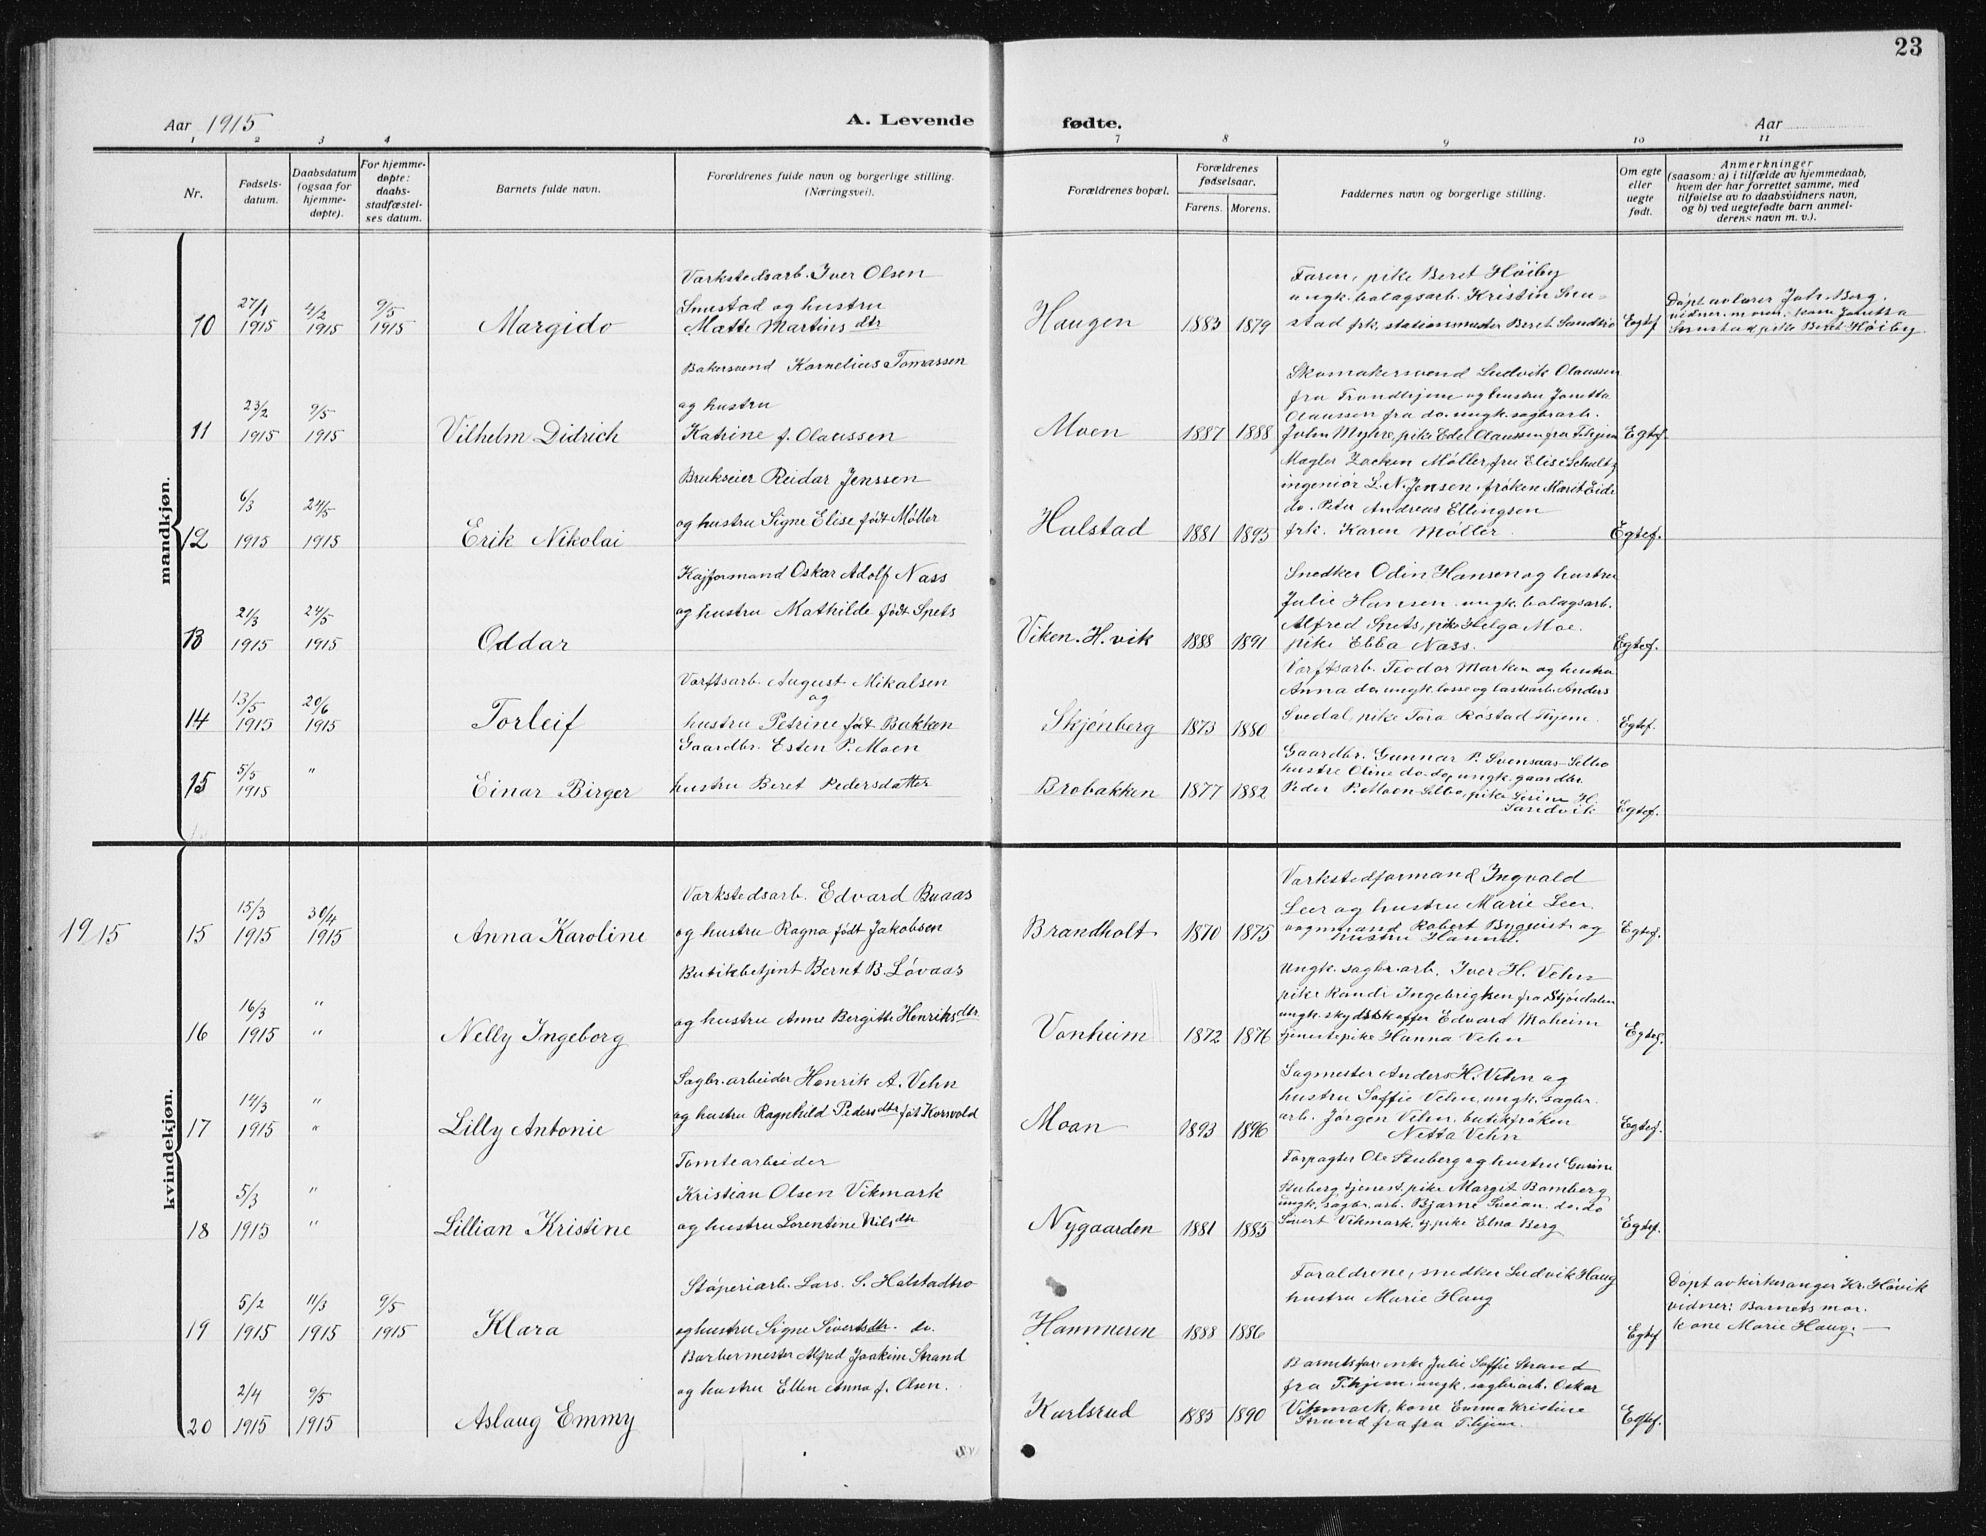 23
Aar 1915
A. Levende fødte.
Aar
1 2 3 4 7 8 9 10 11
Nr.
Fødsels-
datum.
Daabsdatum
(ogsaa for
hjemme-
døpte).
For hjemme-
døpte:
daabs-
stadfæstel-
ses datum.
Barnets fulde navn.
Forældrenes fulde navn og borgerlige stilling.
(Næringsvei).
Forældrenes bopæl.
Forældrenes
fødselsaar.
Farens. Morens.
Faddernes navn og borgerlige stilling.
Om egte
eller
uegte
født.
Anmerkninger
(saasom: a) i tilfælde av hjemmedaab,
hvem der har forrettet samme, med
tilføielse av to daabsvidners navn,
og b) ved uegtefødte barn anmel-
derens navn m. v.).
mandkjøn.
10
27/1
1915
4/2
1915
9/5
1915
Margido
Værkstedsarb. Iver Olsen
Smestad og hustru
Mætte Martinsdtr
Haugen
1883 1879
Faren, pike Beret Høiby
ungk. bolagsarb. Kristin Sme-
stad frk. stationsmester Beret
Egtef
Døpt av lærer Joh. Berg.
vidner: moren, kone
Smestad pike Beret Høiby
11
23/2
1915
9/5
1915
Vilhelm Didrich
Bakersvend Kornelius Tomassen
og hustru
Katrine f. Olaussen
Moen
1887 1888
Skomakersvend Ludvik Olaussen
fra Trondhjem og hustru Jonetta
Olaussen fra do. ungk. sagbrarb.
John Myhre, pike Edel Olaussen fra T.hjem
Egtef.
12
6/3
1915
24/5
1915
Erik Nikolai
Brukseier Reidar Jenssen
og hustru Signe Elise født Møller
Halstad
1881 1895
Mægler Zacken Møller, fru Elise Schultz
ingeniör L. N. Jensen, frøken Marit Eide
do. Peter Andreas Ellingsen
frk. Karen Møller.
Egtef.
13
21/3
1915
24/5
1915
Oddar
Kajformand Oskar Adolf Næss
og hustru Mathilde født Spets
Viken. H.vik
1888 1891
Snedker Odin Hansen og hustru
Julie Hansen. ungk. bolagsarb.
Alfred Spets, pike Helga Moe.
pike Ebba Næss.
Egtef.
14
13/5
1915
20/6
1915
Torleif
Værftsarb. August Mikalsen
og
hustru Petrine født Bakken
Skjønberg
1873 1880
Værftsarb. Teodor Marken og hustru
Anna do. ungk. losse og lastearb. Anders
Svedal, pike Tora Røstad T.hjem.
Egtef.
15
5/5
1915
"
Einar Birger
Gaardbr. Esten P. Moen
hustru Beret Pedersdatter
Brobakken
1877 1882
Gaardbr. Gunnar P. Svensaas Selbo
hustru Oline do. do, ungk. gaardbr.
Peder P. Moen Selbo, pike H.
Sandvik
Egtef.
1915
kvindekjøn.
15
15/3
1915
30/4
1915
Anna Karoline
Værkstedsarb. Edvard Buaas
og hustru Ragna født Jakobsen
Brandholt
1870 1875
Værkstedformand Ingvald
Leer og hustru Marie Leer
vognmand Robert Byqvist og
hustru Hanna.
Egtef.
16
16/3
1915
"
"
Nelly Ingeborg
Butikbetjent Bernt B. Løvaas
og hustru Anne Bergitte Henriksdtr
Vonheim
1872 1876
Ungk. sagbr.arb. Iver H. Vehn
pike Randi Ingebrigtsen fra Stjørdalen
ungk. skydtskaffer Edvard Moheim
tjenestepike Hanna Vehn
Egtef.
17
14/3
1915
"
"
Lilly Antonie
Sagbr.arbeider Henrik A. Vehn
og hustru Ragnhild Pedersdtr født Korsvold
Moan
1893 1896
Sagmester Anders H. Vehn og
hustru Soffie Vehn, ungk. sagbr.
arb. Jørgen Vehn, butikfrøken
Netta Vehn
Egtef.
18
5/3
1915
"
"
Lillian Kristine
Tomtearbeider
Kristian Olsen Vikmark
og hustru Lorentine Nilsdtr
Nygaarden
1881 1885
Forpagter Ole Stuberg og hustru Gurine
Stuberg tjenest. pike Margit Bamberg
ungk. sagbr. arb. Bjarne Sveian. do. do
Sivert Vikmark. tj. pike Elna Berg
Egtef.
19
5/2
1915
11/3
1915
9/5
1915
Klara
Støperiarb. Lars. S. Halstadtrø
og hustru Signe Sivertsdtr. do.
Hammeren
1888 1886
Foraldrene, snedker Ludvik Haug
hustru Marie Haug
Egtef
Døpt av kirkesanger Kr. Høvik
vidner: Barnets mor.
kone Marie Haug.
20
2/4
1915
9/5
1915
Aslaug Emmy
Barbermester Alfred Joakim Strand
og hustru Ellen Anna f. Olsen.
Karlsrud
1885 1890
Barnets far, enke Julie Soffie Strand
fra T.hjem. ungk. sagbr.arb. Oskar
Vikmark, kone Emma Kristine
Strand fra fra T.hjem.
Egtef.